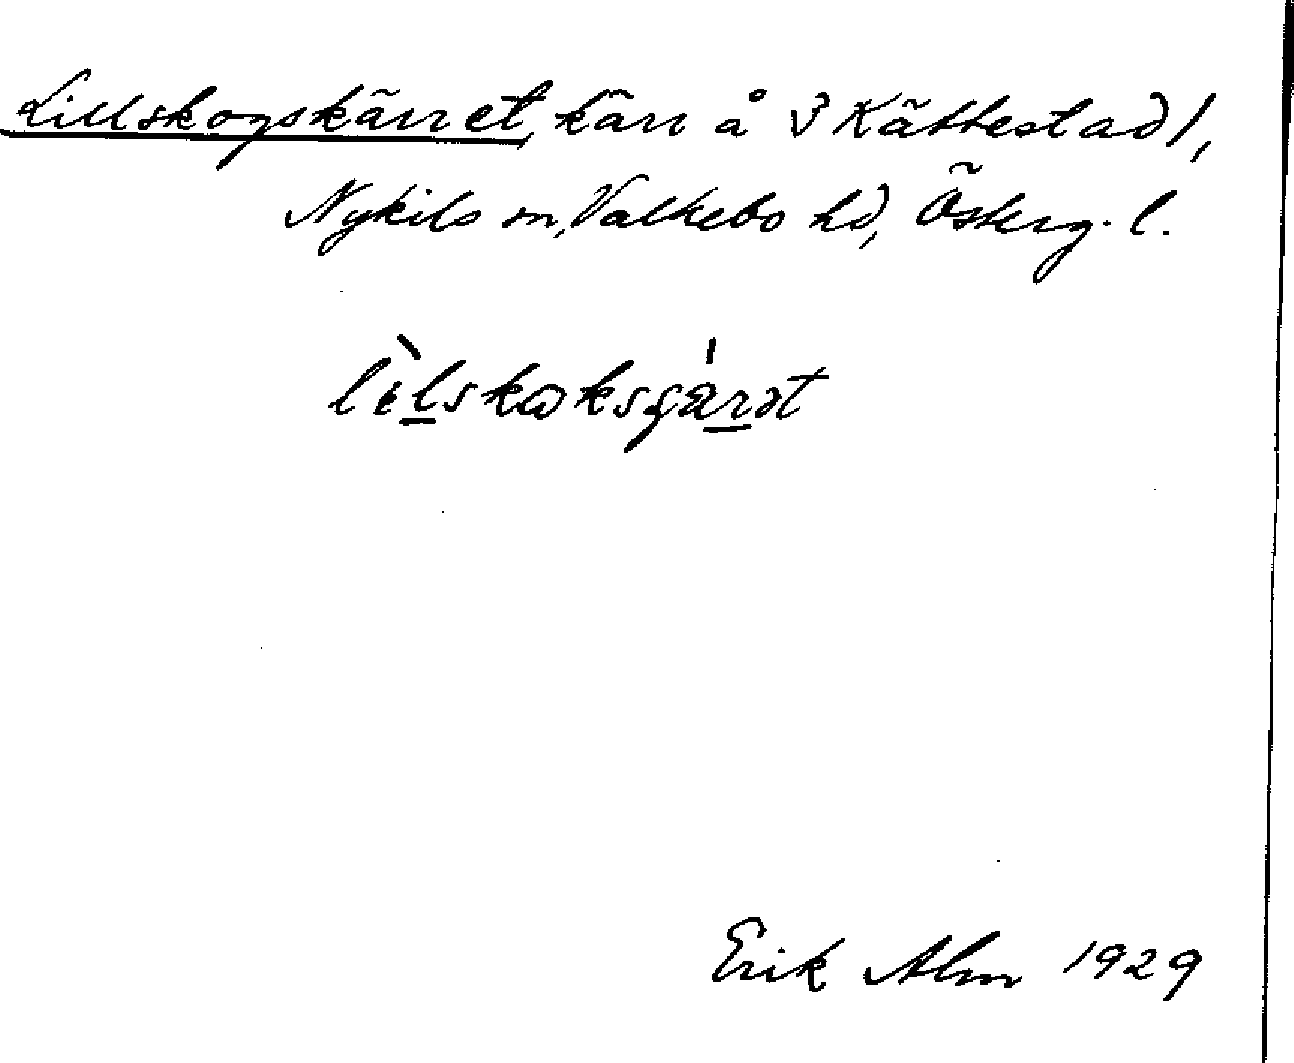 Lillskogskärret, kärr å V Kättestad 1,
Nykils sn, Valkebo hd, Österg. l.
lìlskⱺksgárət
Erik Alm 1929